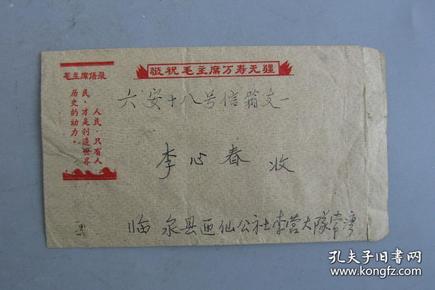 敬祝毛主席万寿无疆
毛主席语录
人民，只有人
民，才是创造世界
历史的动力。
六安十八号信箱支一
李心春 收
临泉县迎仙公社李营大队常湾
孔夫子旧书网
www.kongfz.com